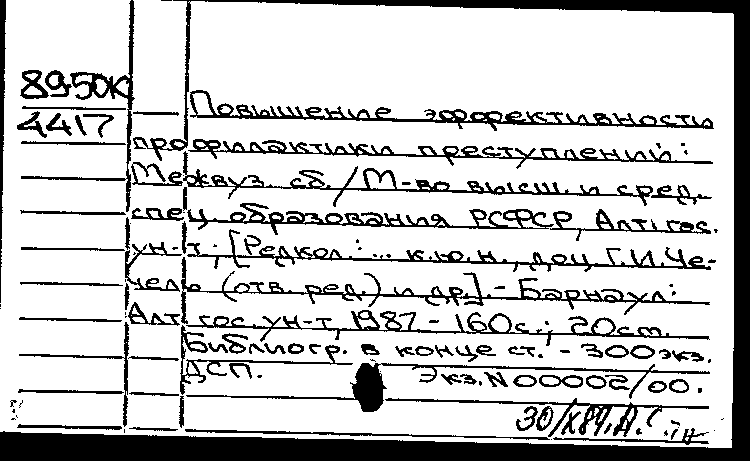 8950К
4417
Повышение эффективности
профилактики преступлений:
Межвуз. сб./М-во высш. и сред.
спец. образования РСФСР, Алт. гос.
ун-т; [Редкол.: ... к.ю.н., доц. Г.И. Че-
чель (отв. ред.) и др.]. - Барнаул:
Алт. гос. ун-т, 1987 - 160с.; 20ст.
Библиогр. в конце ст. - 300экз.
ДСП. Экз. N 00002/00.
30/X89.